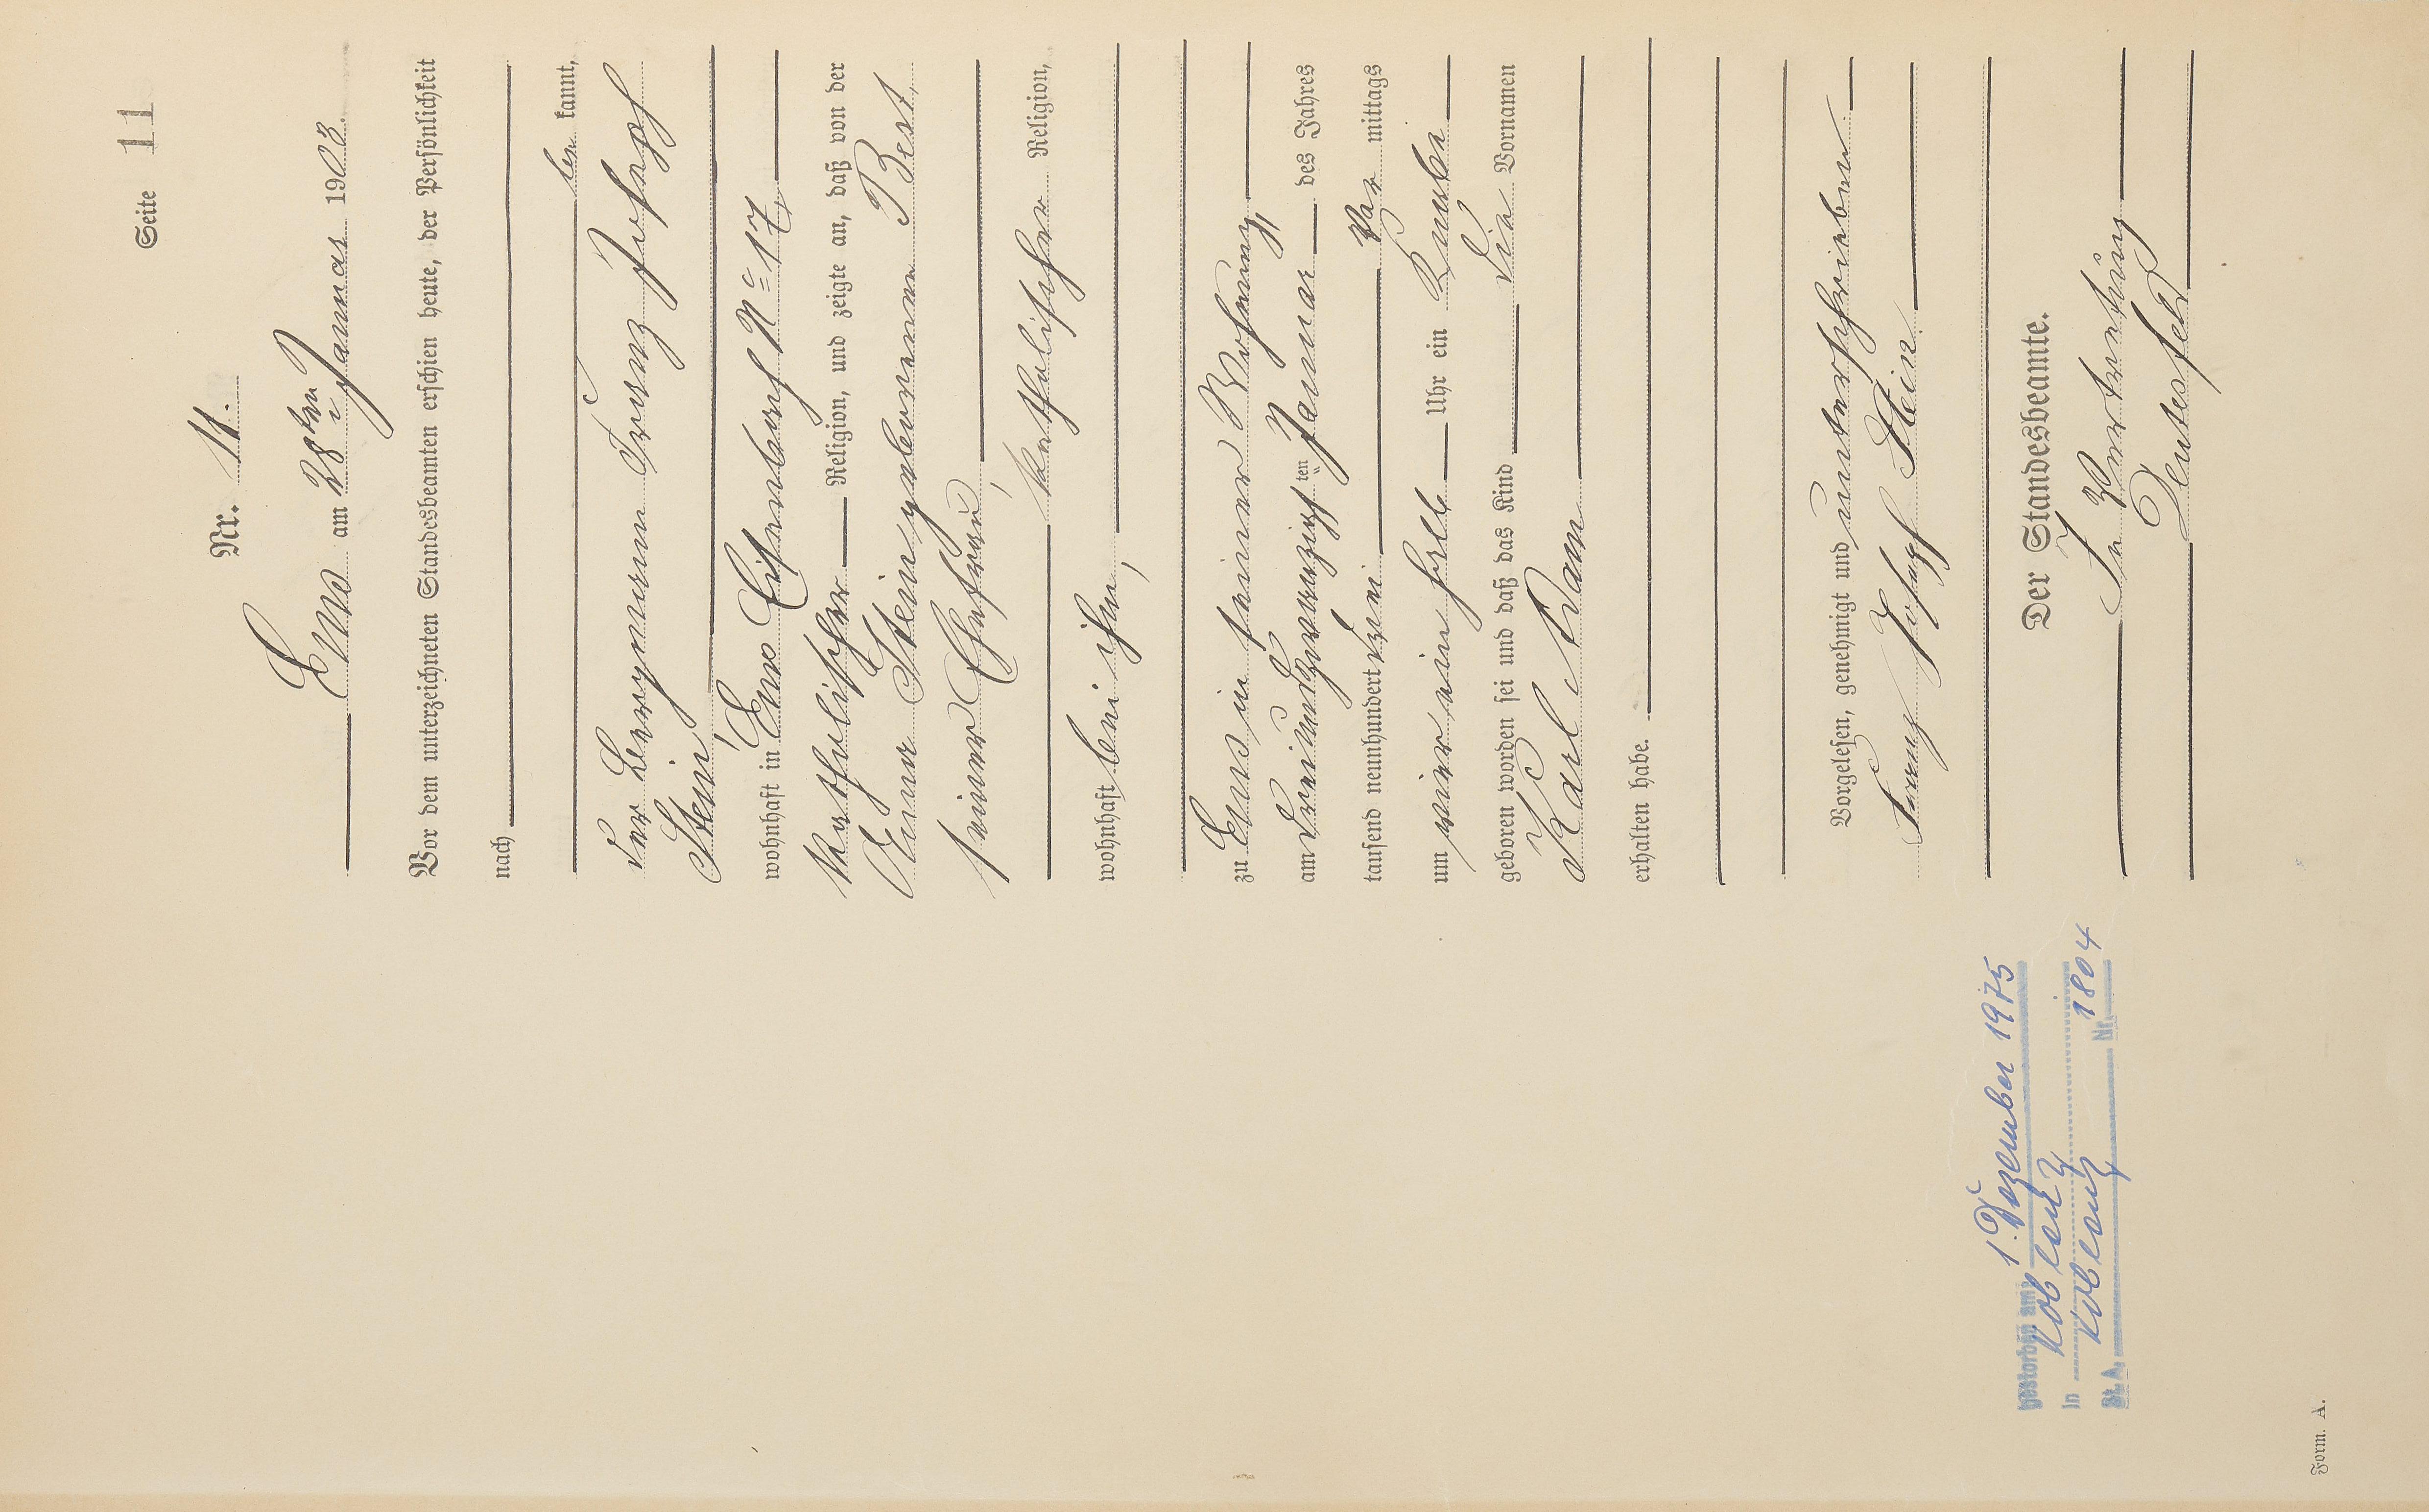 Seite 11
Nr. 11.
Ems am 28ten Januar 1903.
Vor dem unterzeichneten Standesbeamten erschien heute, der Persönlichkeit
nach
be kannt,
der Bergmann Franz Joseph
Stein,
wohnhaft in Ems Eisenbach Nо 17,
katholischer Religion, und zeigte an, daß von der
Anna Stein geborenen Best,
seiner Ehefrau,
katholischer Religion,
wohnhaft bei ihm,
zu Ems in seiner Wohnung
am dreiundzwanzigsten Januar des Jahres
tausend neunhundert drei Vor mittags
um vier ein halb Uhr ein Knabe
geboren worden sei und daß das Kind die Vornamen
Karl Adam
erhalten habe.
Vorgelesen, genehmigt und unterschrieben
Franz Josef Stein.
Der Standesbeamte.
In Vertretung
gestorben am 1. Dezember 1975
in Koblenz
St. A. Koblenz Nr. 1804
Form. A.